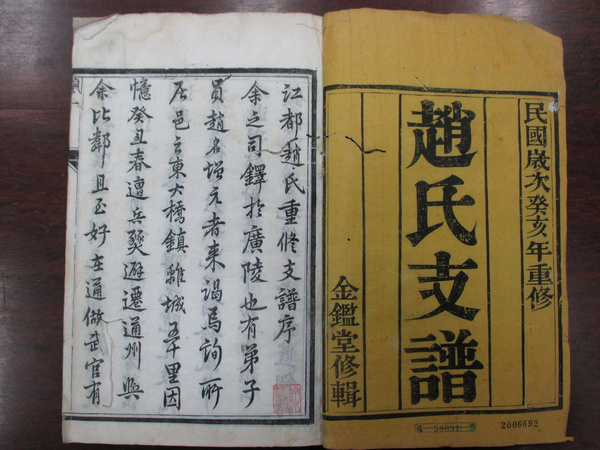 民國歲次癸亥年重修
趙氏支譜
金鑑堂修輯
2006692
江都趙氏重修支譜序
余之司鐸於廣陵也有弟子
員趙名增元者来謁焉詢所
居邑之東大橋鎮離城五十里因
憶癸丑春遭兵燹避遷通州與
余比鄰且至好在通做武官有